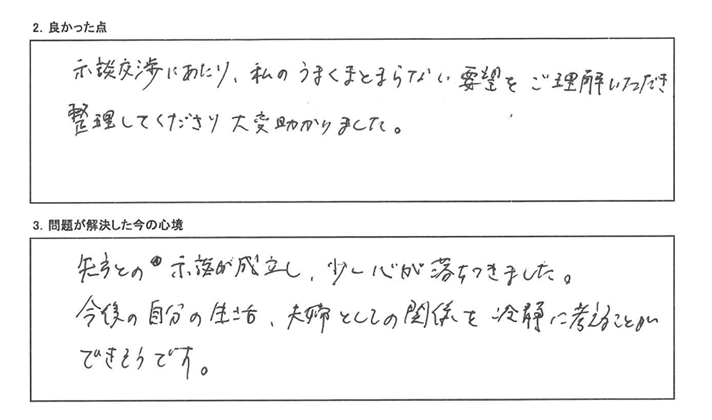 2. 良かった点
示談交渉にあたり、私のうまくまとまらない要望をご理解いただき
整理してくださり大変助かりました。
3. 問題が解決した今の心境
先方との示談が成立し、少し心が落ちつきました。
今後の自分の生活、夫婦としての関係を冷静に考えることが
できそうです。